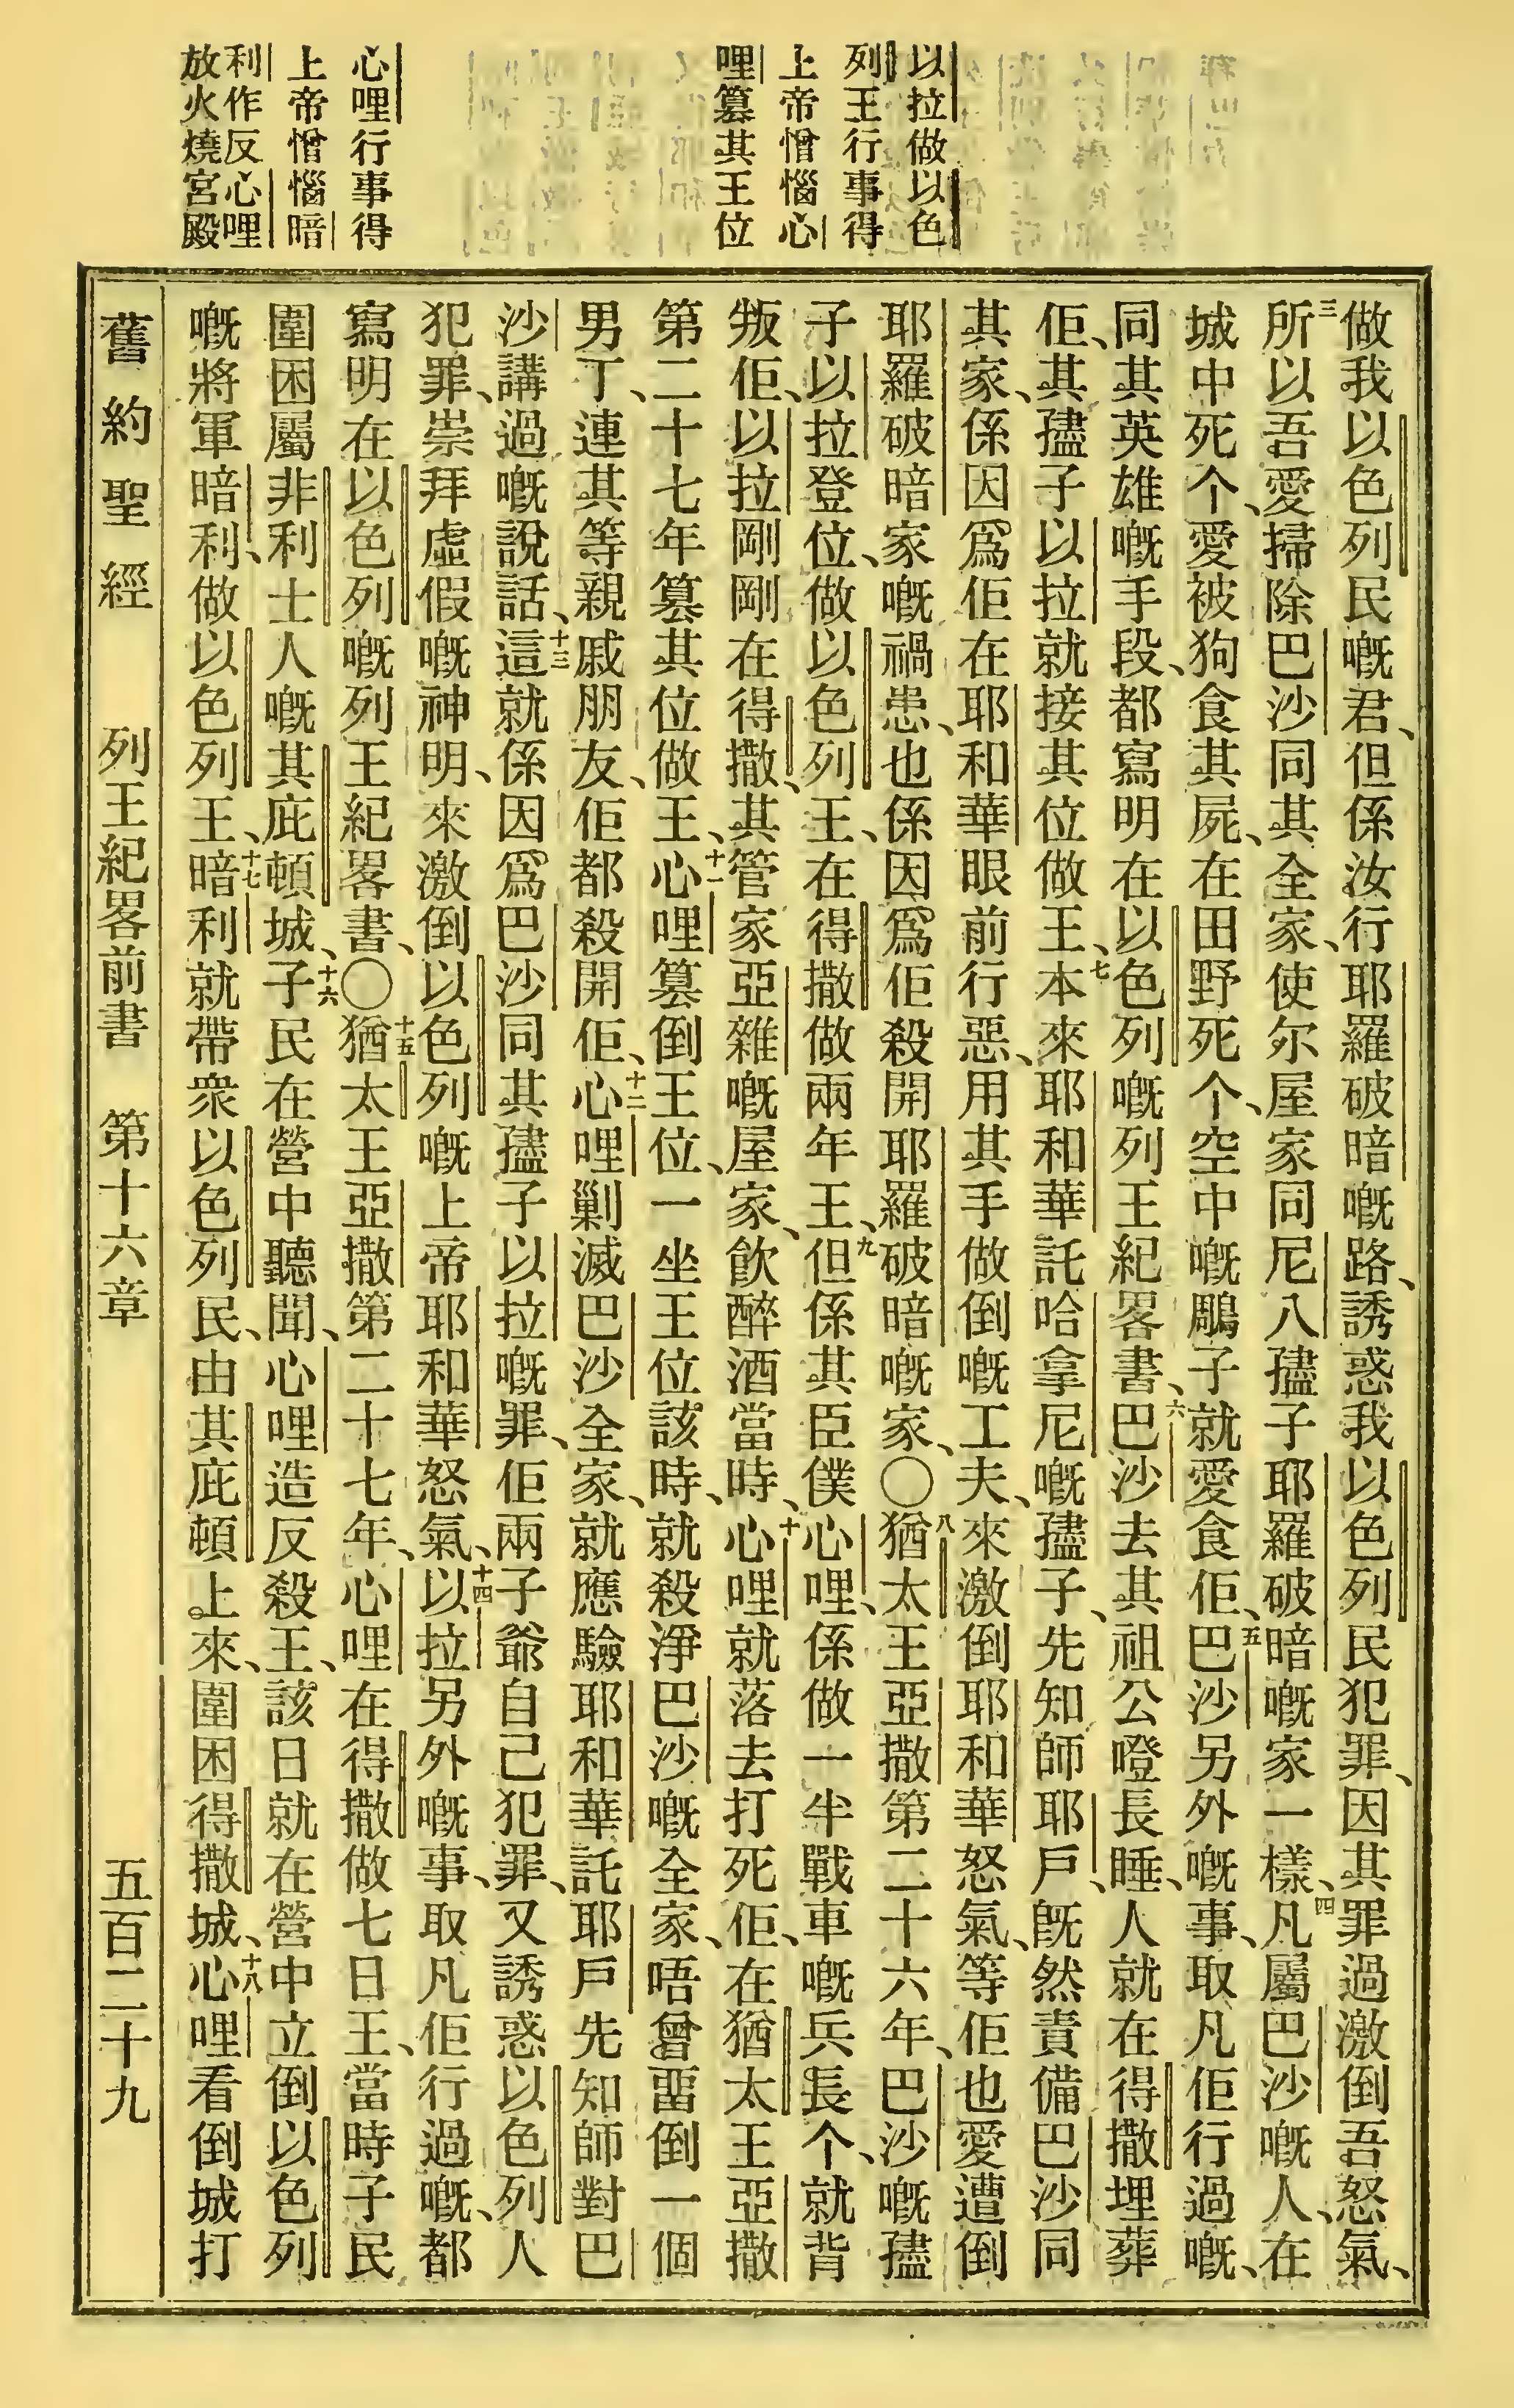 以拉做以色
列王行事得
上帝憎惱心
哩篡其王位
心哩行事得
上帝憎惱暗
利作反心哩
放火燒宮殿
做我以色列民嘅君、但係汝行耶羅破暗嘅路、誘惑我以色列民犯罪、因其罪過激倒吾怒氣、
三所以吾愛掃除巴沙同其全家、使尔屋家同尼八𡥧子耶羅破暗嘅家一樣、四凡屬巴沙嘅人、在
城中死个、愛被狗食其屍、在田野死个、空中嘅鵰子就愛食佢、五巴沙另外嘅事、取凡佢行過嘅、
同其英雄嘅手段、都寫明在以色列嘅列王紀畧書、六巴沙去其祖公嶝長睡、人就在得撒埋葬
佢、其𡥧子以拉就接其位做王、七本來耶和華託哈拿尼嘅𡥧子、先知師耶戶、旣然責備巴沙同
其家、係因爲佢在耶和華眼前行惡、用其手做倒嘅工夫、來激倒耶和華怒氣、等佢也愛遭倒
耶羅破暗家嘅禍患、也係因爲佢殺開耶羅破暗嘅家、〇八猶太王亞撒第二十六年、巴沙嘅𡥧
子以拉登位、做以色列王、在得撒做兩年王、九但係其臣僕心哩、係做一半戰車嘅兵長个、就背
叛佢、以拉剛剛在得撒、其管家亞雜嘅屋家、飮醉酒當時、十心哩就落去打死佢、在猶太王亞撒
第二十七年篡其位做王、十一心哩篡倒王位、一坐王位該時、就殺淨巴沙嘅全家、唔曾畱倒一個
男丁、連其等親戚朋友、佢都殺開佢、十二心哩剿滅巴沙全家、就應驗耶和華託耶戶先知師對巴
沙講過嘅說話、十三這就係因爲巴沙同其𡥧子以拉嘅罪、佢兩子爺自己犯罪、又誘惑以色列人
犯罪、崇拜虛假嘅神明、來激倒以色列嘅上帝耶和華怒氣、十四以拉另外嘅事、取凡佢行過嘅、都
寫明在以色列嘅列王紀畧書、〇十五猶太王亞撒第二十七年、心哩在得撒做七日王、當時子民
圍困屬非利士人嘅其庇頓城、十六子民在營中聽聞、心哩造反殺王、該日就在營中立倒以色列
嘅將軍暗利、做以色列王、十七暗利就帶衆以色列民、由其庇頓上來、圍困得撒城、十八心哩看倒城打
舊約聖經 列王紀畧前書 第十六章 五百二十九